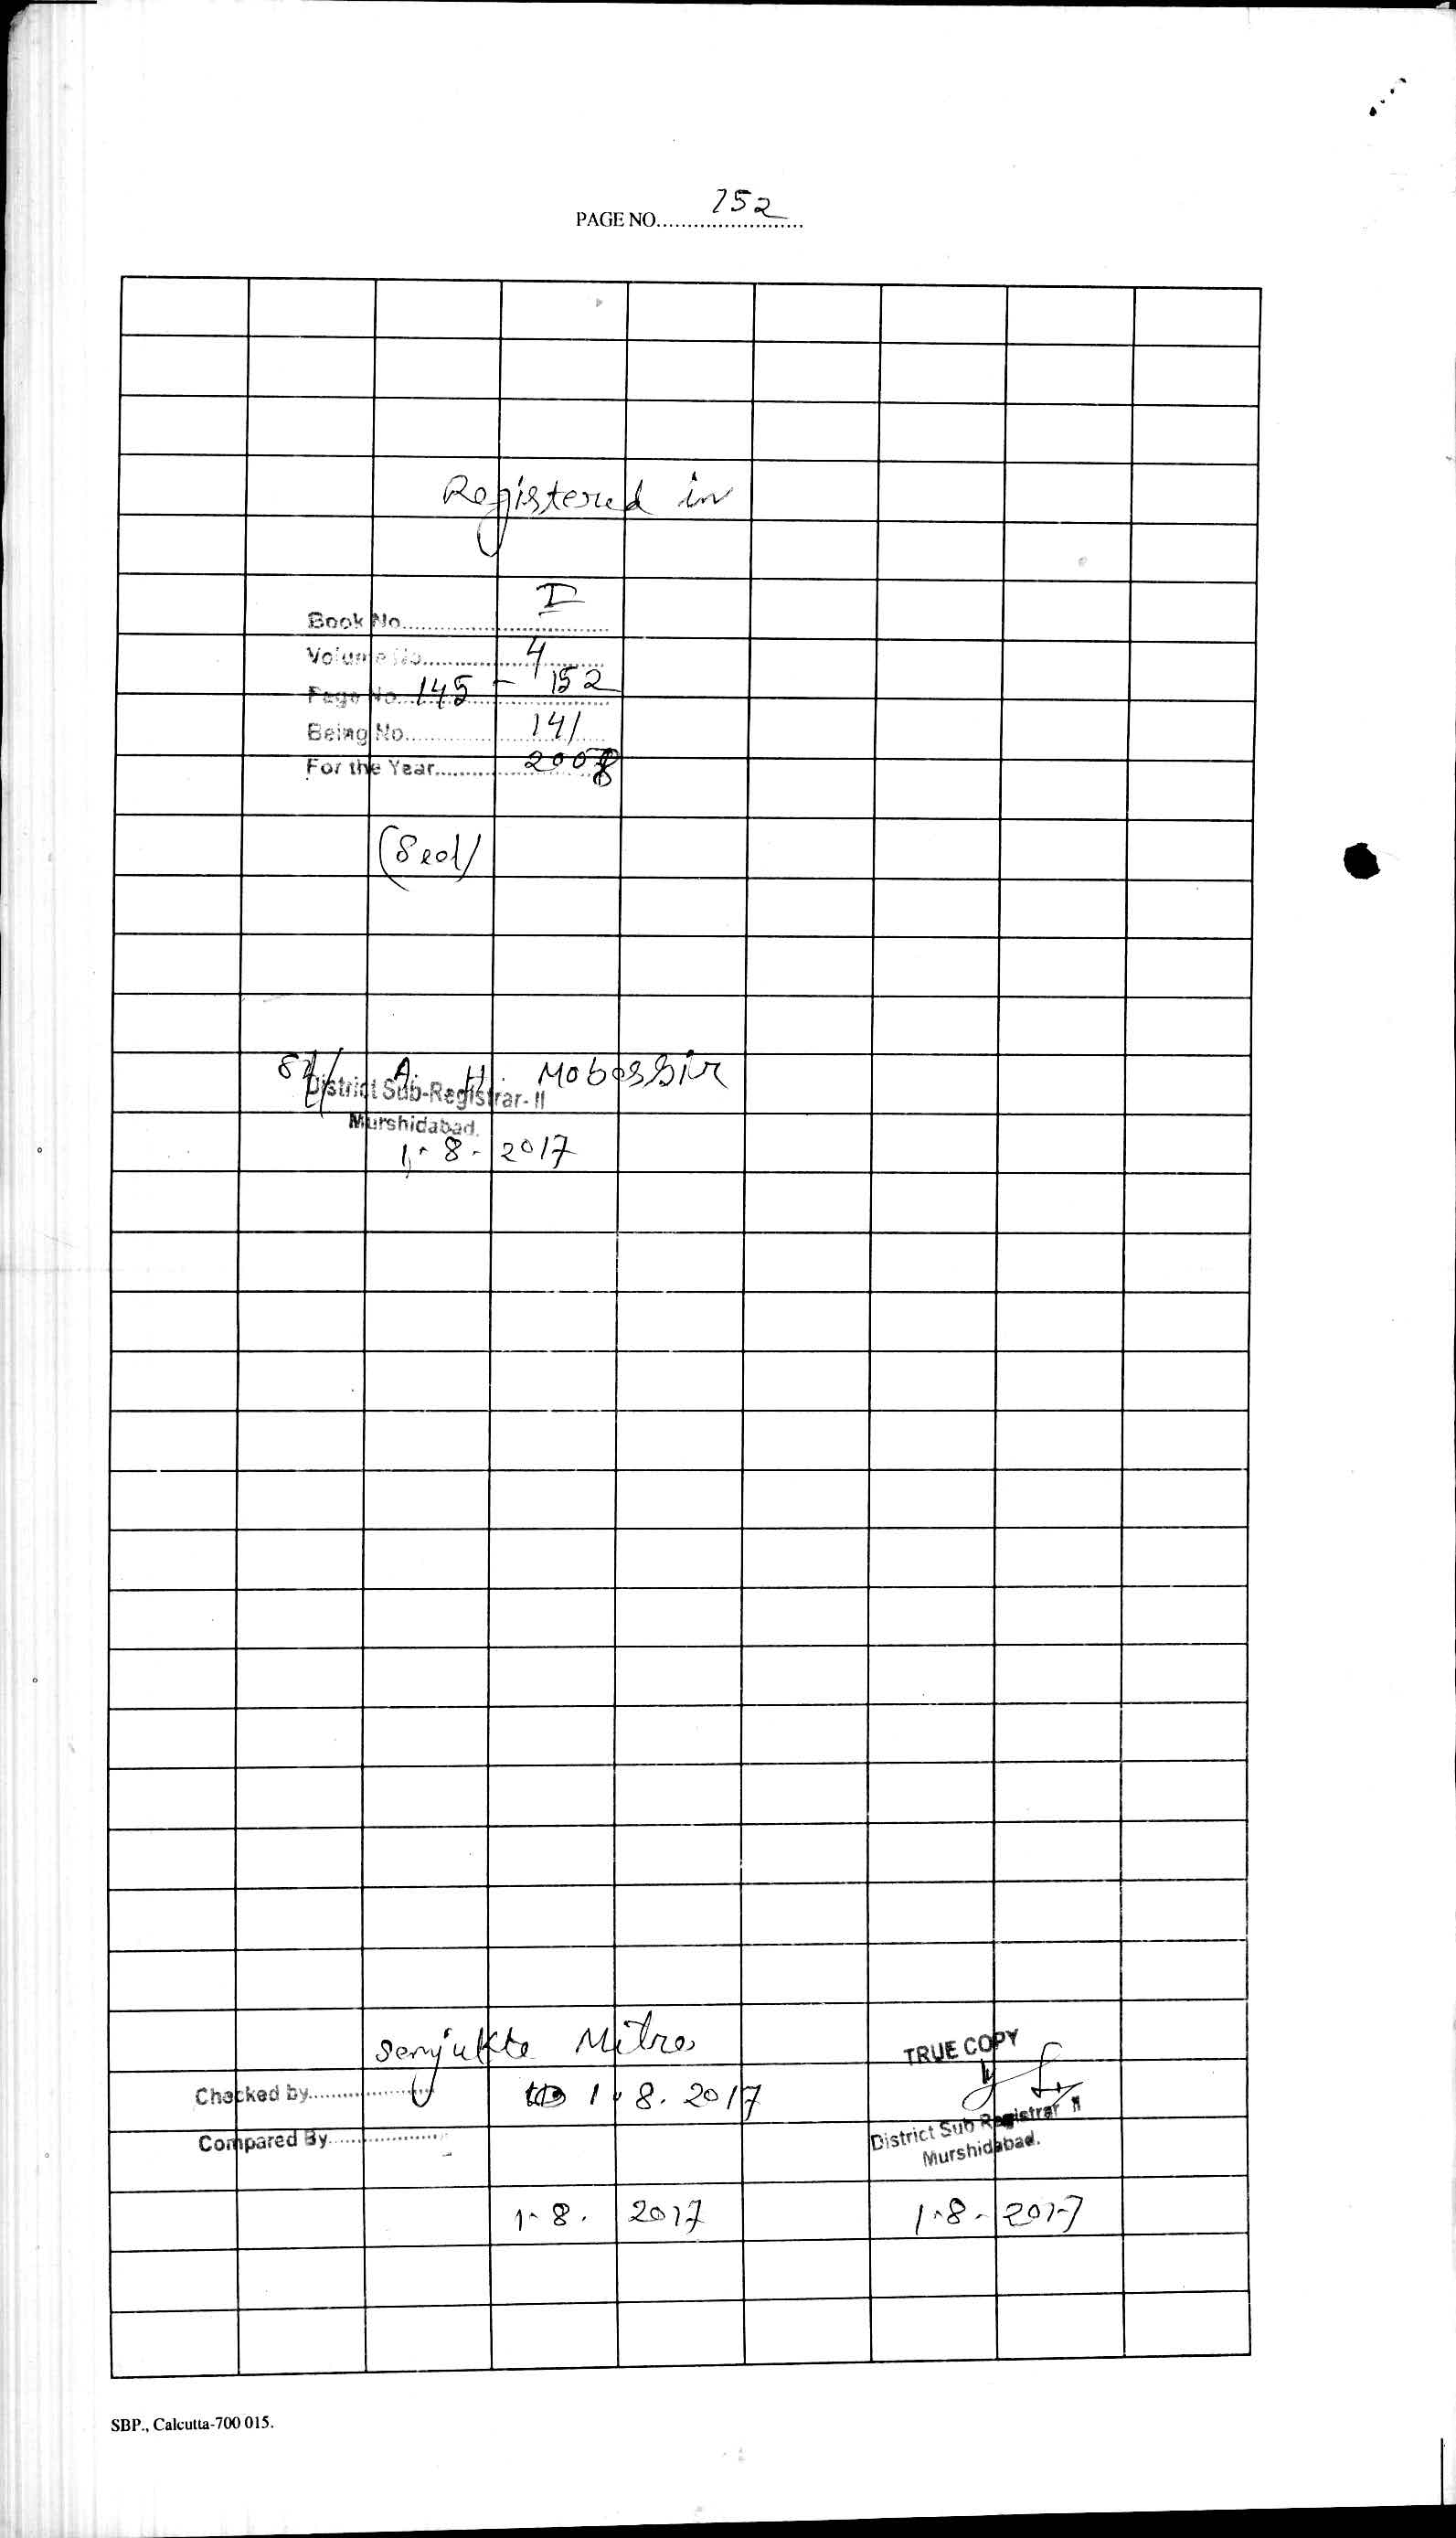 PAGE NO. 152
Registered in
Book No. I
Volume No. 4
Page No. 145 - 152
Being No. 141
For the Year 2008
(Seal)
Sd/ A. H. Mobassir
District Sub-Registrar-II
Murshidabad.
1-8-2017
Senjukta Mitra
TRUE COPY
Checked by
1.8.2017
Compared By
District Sub Registrar II
Murshidabad.
1-8. 2017
1-8-2017
SBP., Calcutta-700 015.